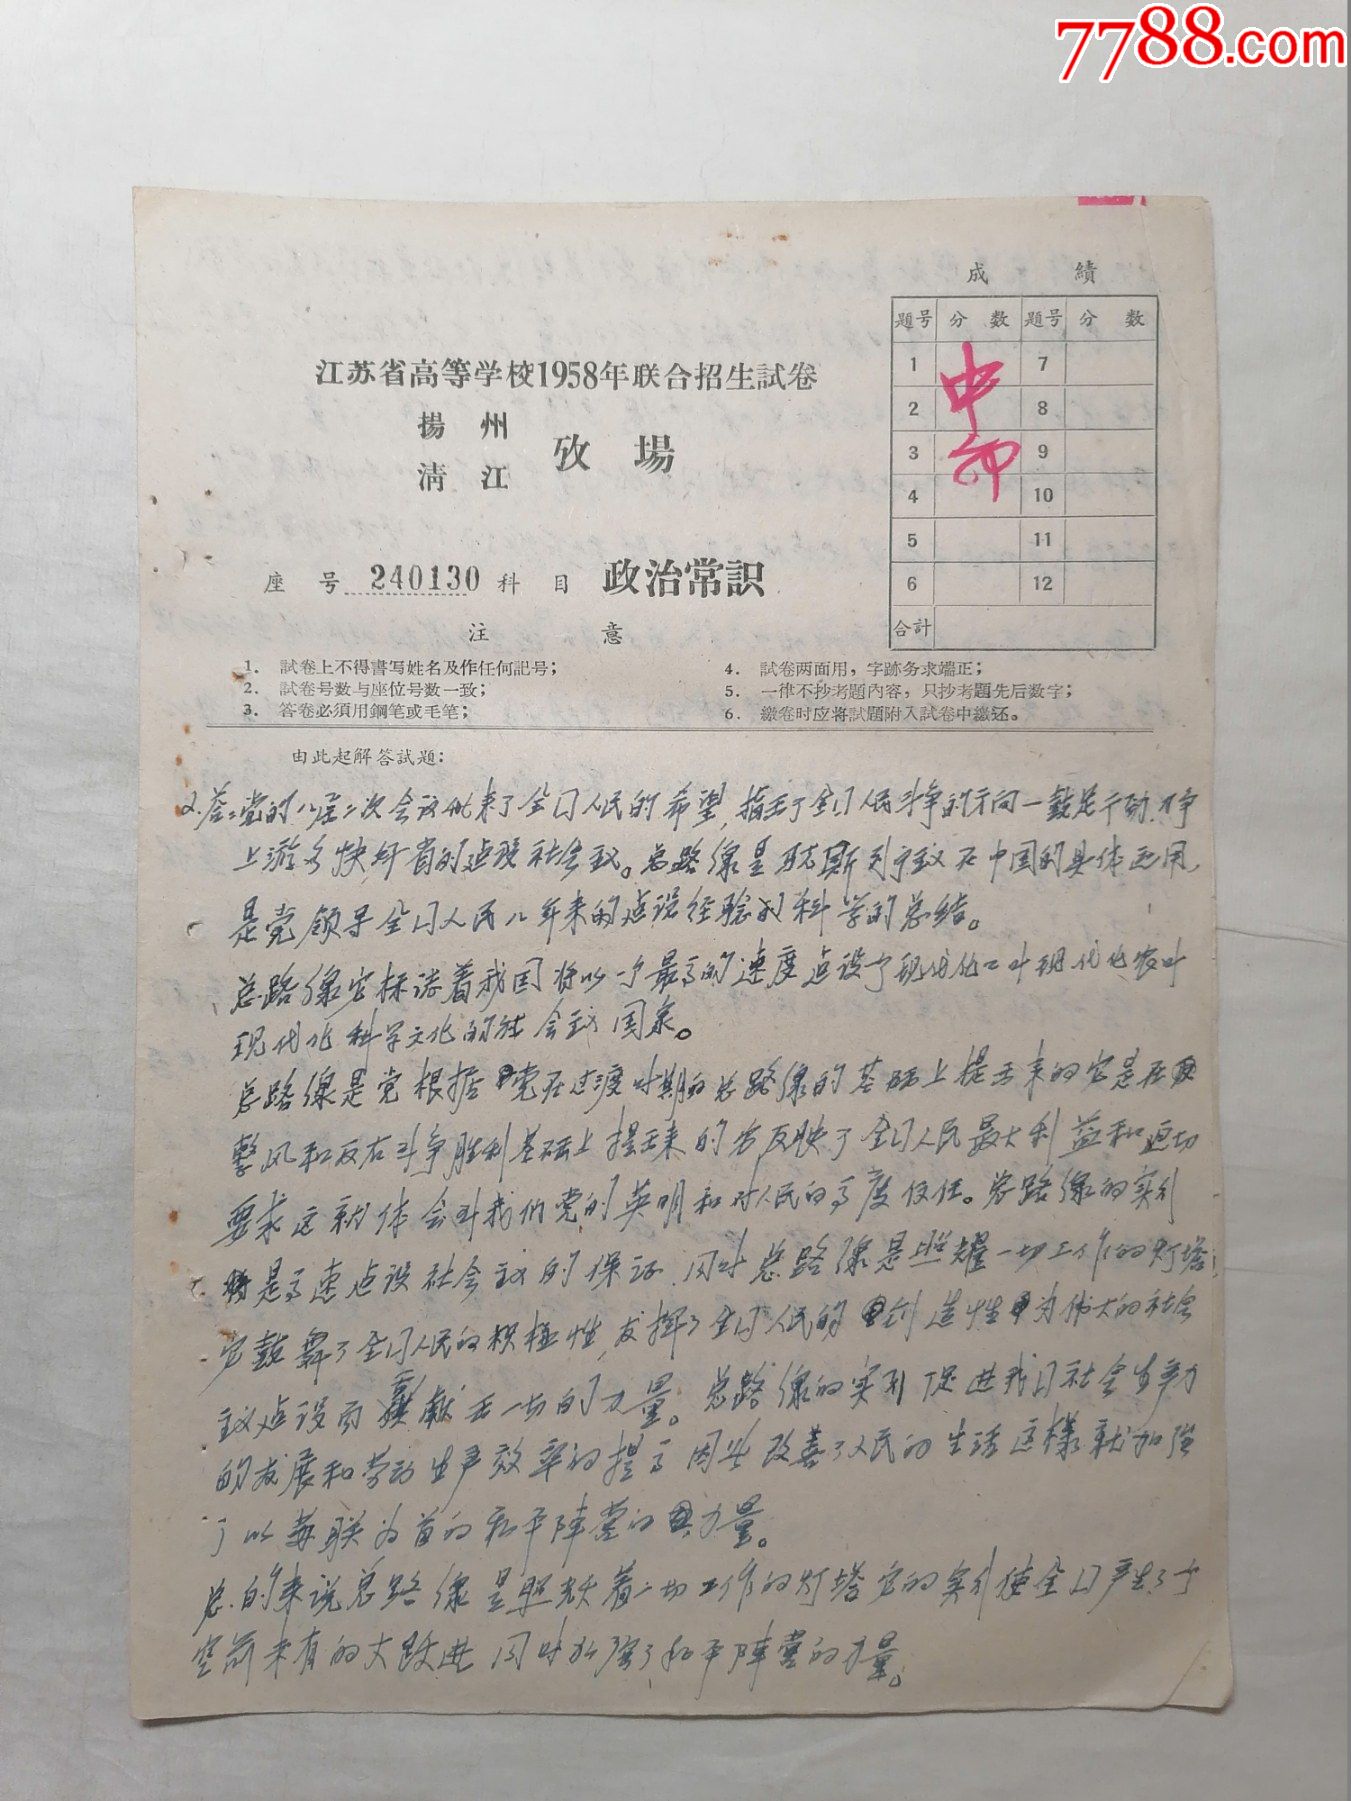 7788.com
成 績
題号 分 数 題号 分 数
1 7
2 8
3 9
4 10
5 11
6 12
合計
中
江苏省高等学校1958年联合招生試卷
揚州
清江
攷場
座号 240130 科目 政治常識
注意
1. 試卷上不得書写姓名及作任何記号;
2. 試卷号数与座位号数一致;
3. 答卷必須用鋼笔或毛笔;
4. 試卷两面用，字跡务求端正;
5. 一律不抄考題內容，只抄考題先后数字;
6. 繳卷时应将試題附入試卷中繳还。
由此起解答試題:
2.答：党的八届二次会议 来了全国人民的希望，指出了全国人民斗争的方向一鼓足干劲，力争
上游多快好省的建设社会主义。总路線是马克思列宁主义在中国的具体运用，
是党领导全国人民八年来的建设经验的科学的总结。
总路線它标志着我国将以一个最高的速度建设 现代化工业现代化农业
现代化科学文化的社会主义国家。
总路線是党根据党在过渡时期的总路線的基础上提出来的它是在
整风和反右斗争胜利基础上提出来的 反映了全国人民最大利益和迫切
要求这就体会到我们党的英明和对人民的高度信任。总路線的实行
是高速建设社会主义的保证，同时总路線是照耀一切工作的灯塔
它鼓舞了全国人民的积极性，发挥了全国人民的创造性为伟大的社会
主义建设而 献出一切的力量。总路線的实行促进我国社会生产力
的发展和劳动生产效率的提高因此改善了人民的生活这樣就加强
了以苏联为首的和平阵营的力量。
总的来说总路線是照 着一切工作的灯塔它的实行使全国产生了个
空前未有的大跃进同时加强了和平阵营的力量。